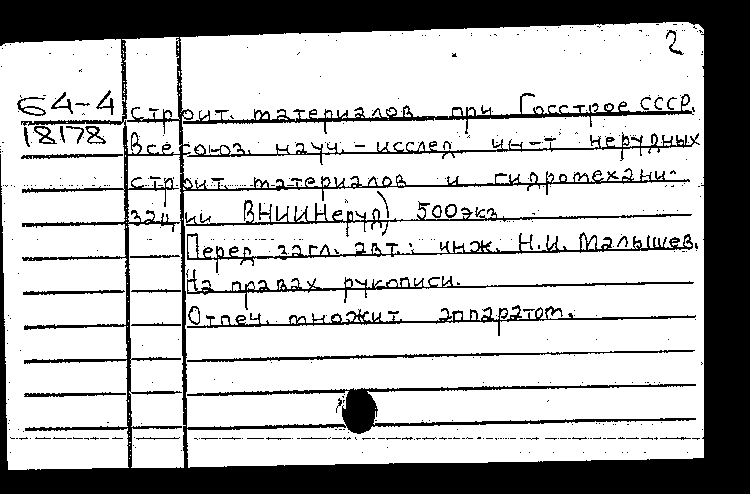 2
64-4
18178
строит. материалов при Госстрое СССР.
Всесоюз. науч.-исслед. ин-т нерудных
строит. материалов и гидромехани-
зации ВНИИНеруд). 500 экз.
Перед загл. авт.: инж. Н.И. Малышев.
На правах рукописи.
Отпеч. множит. аппаратом.